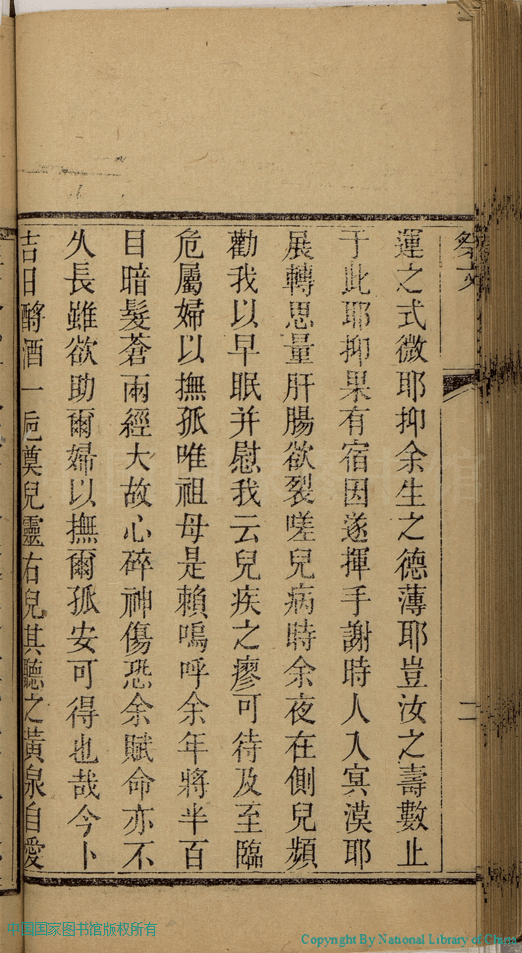 祭文
二
運之式微耶抑余生之德薄耶豈汝之壽數止
于此耶抑果有宿因遂揮手謝時人入冥漠耶
展轉思量肝腸欲裂嗟兒病時余夜在側兒頻
勸我以早眠并慰我云兒疾之瘳可待及至臨
危屬婦以撫孤唯祖母是賴嗚呼余年將半百
目暗髮蒼兩經大故心碎神傷恐余賦命亦不
久長雖欲助爾婦以撫爾孤安可得也哉今卜
吉日酹酒一卮奠兒靈右兒其聽之黃泉自愛
中国国家图书馆版权所有
Copyright By National Library of China